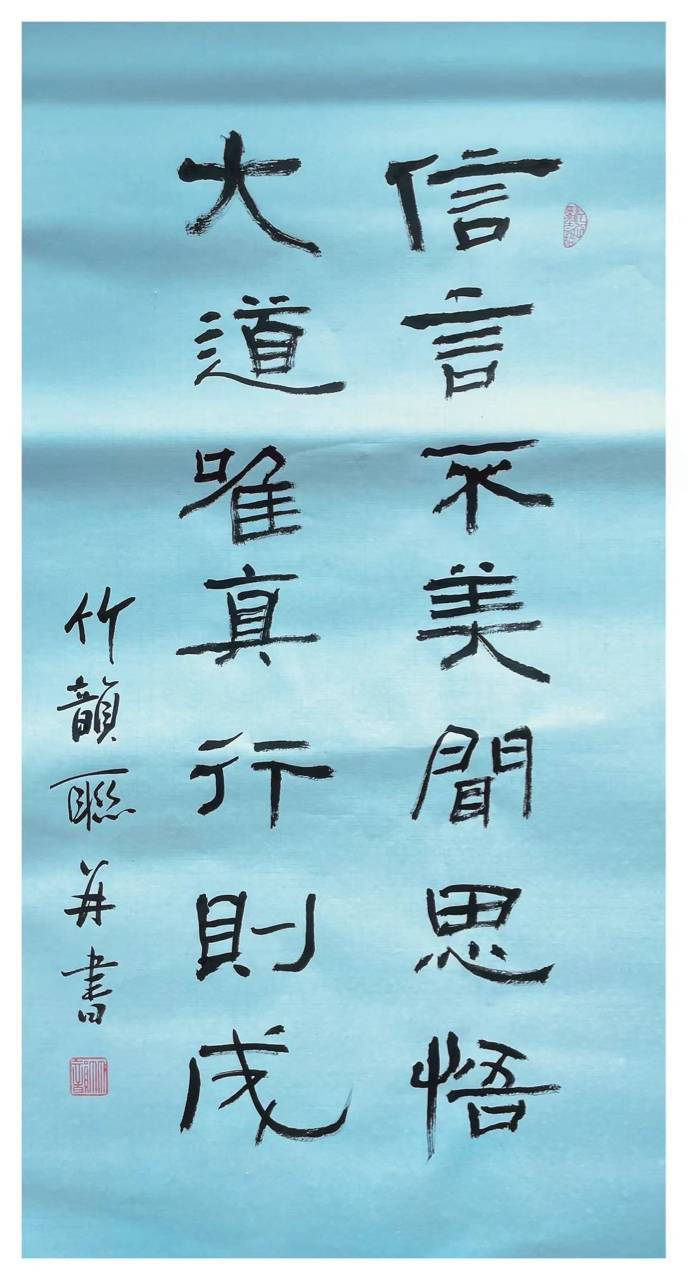 信言不美聞思悟
大道唯真行則成
竹韻聯并書